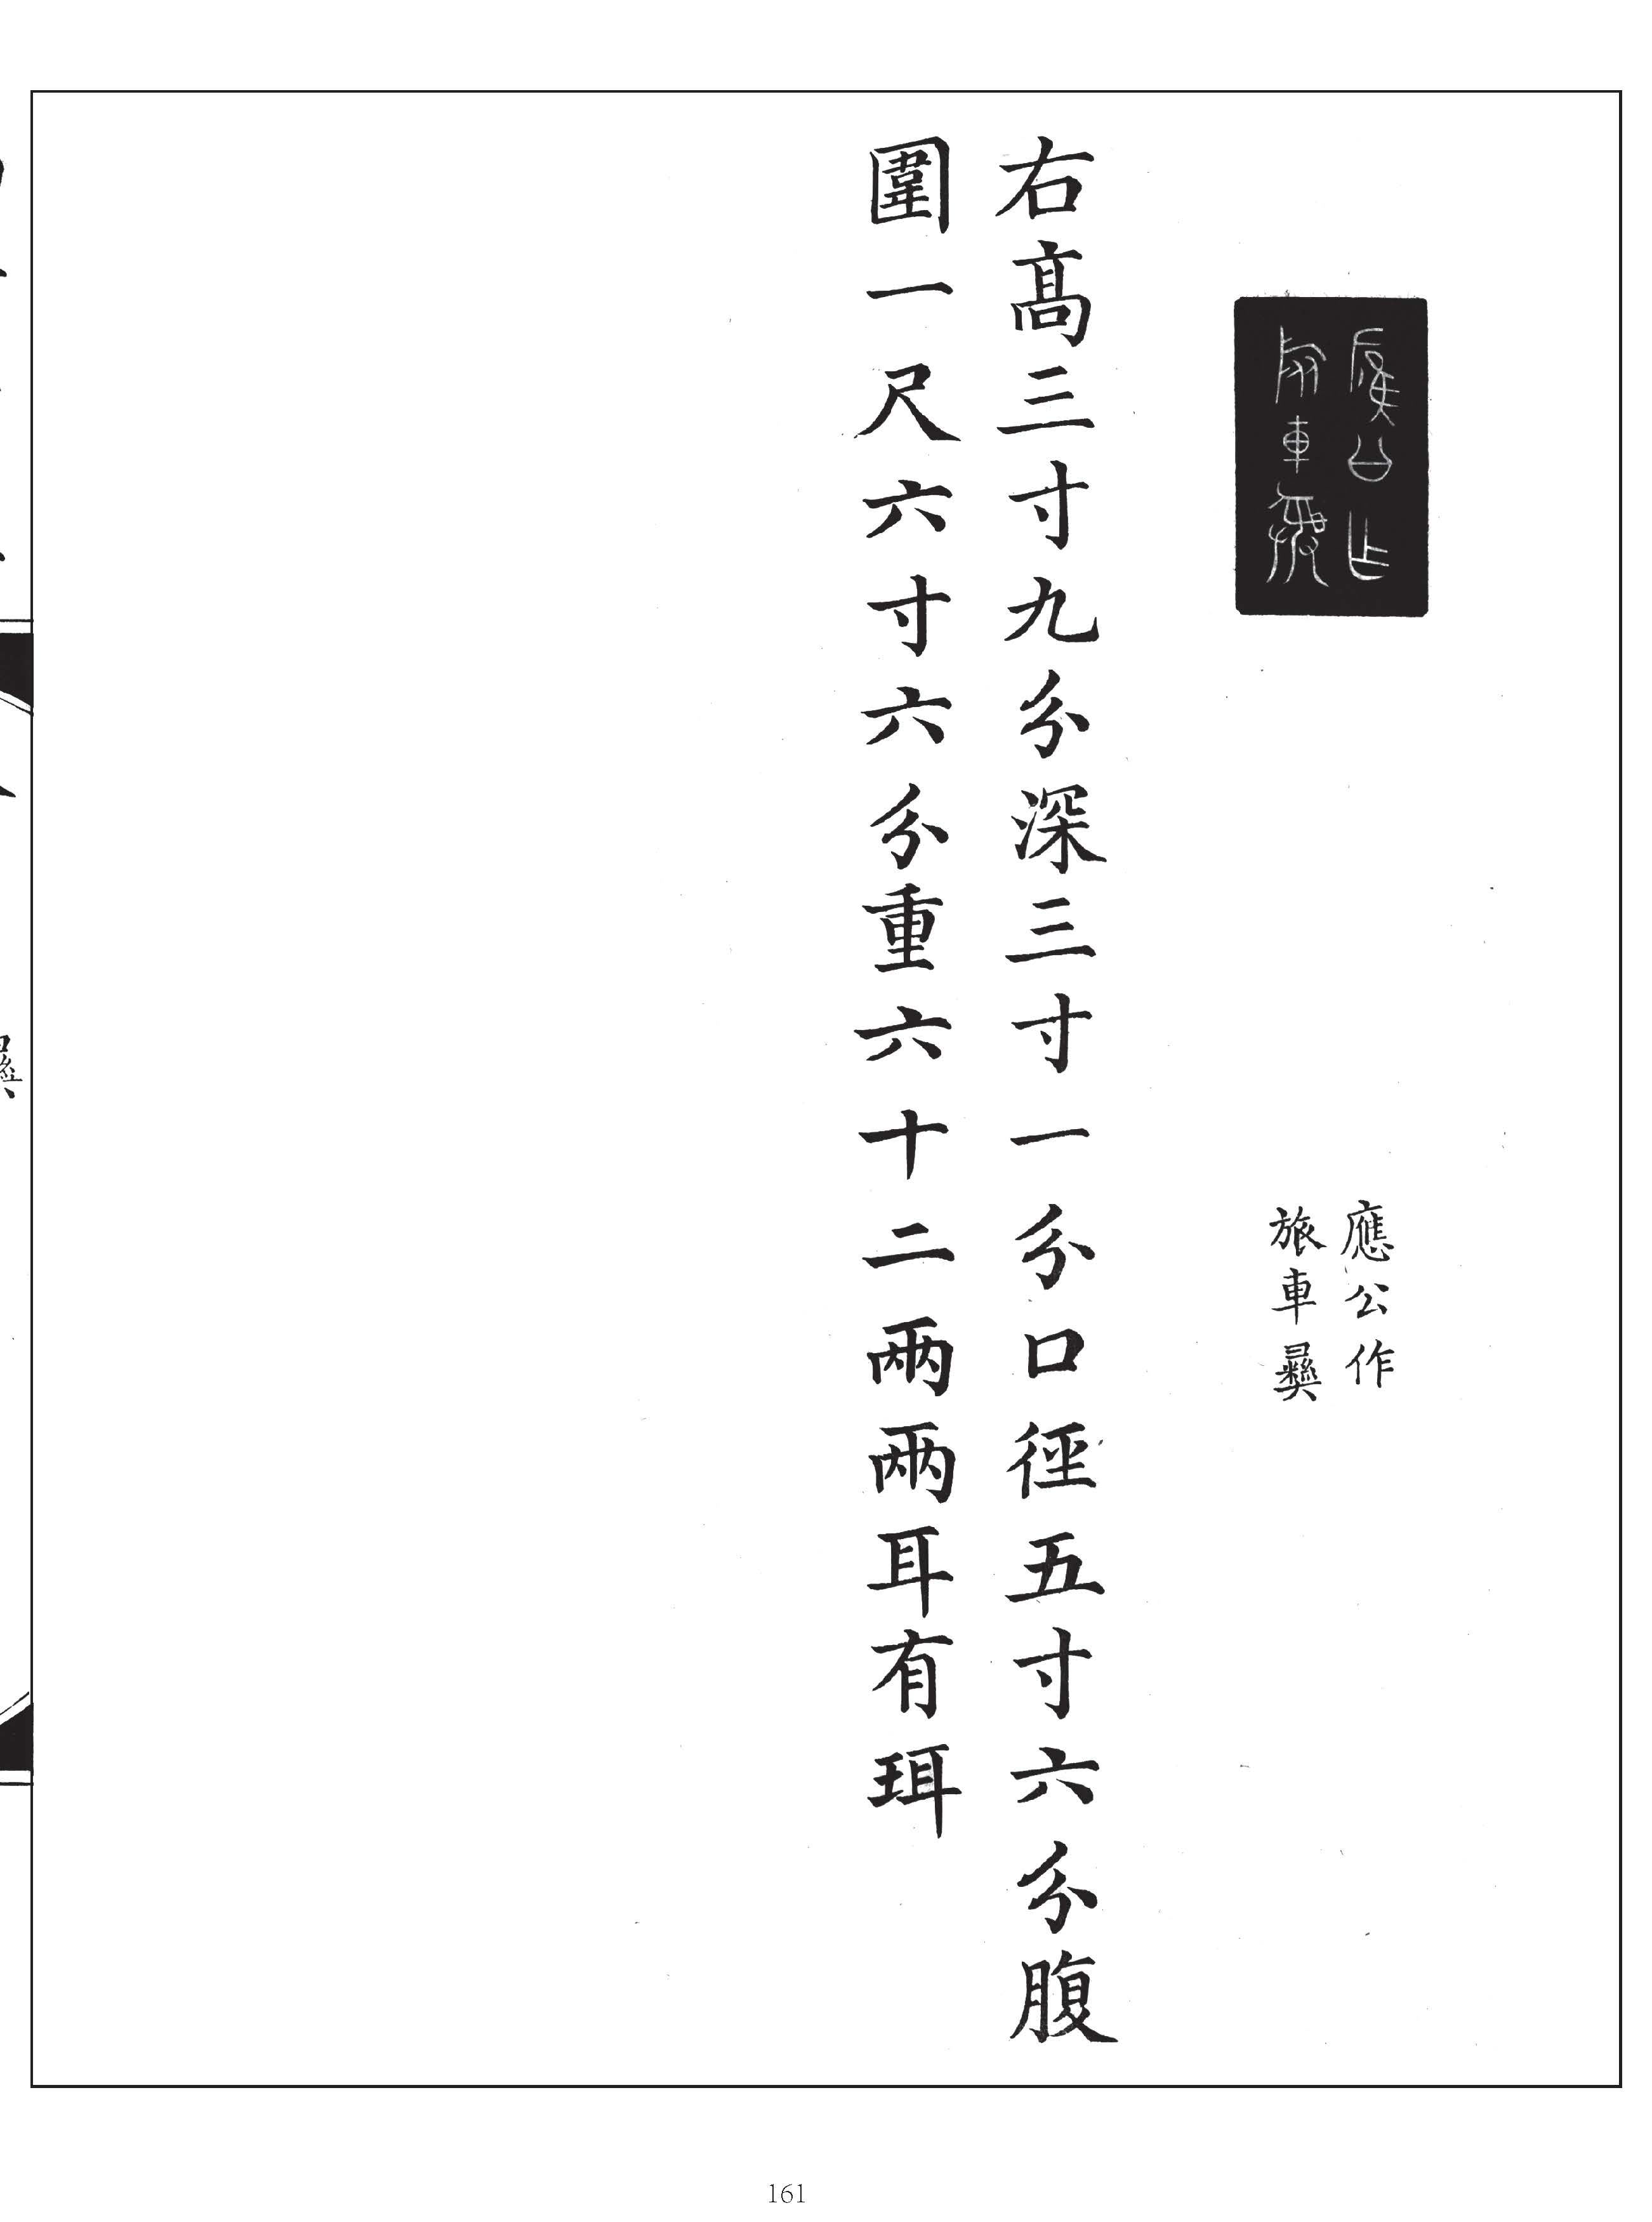 應公作
旅車彝
右高三寸九分深三寸一分口徑五寸六分腹
圍一尺六寸六分重六十二兩兩耳有珥
161